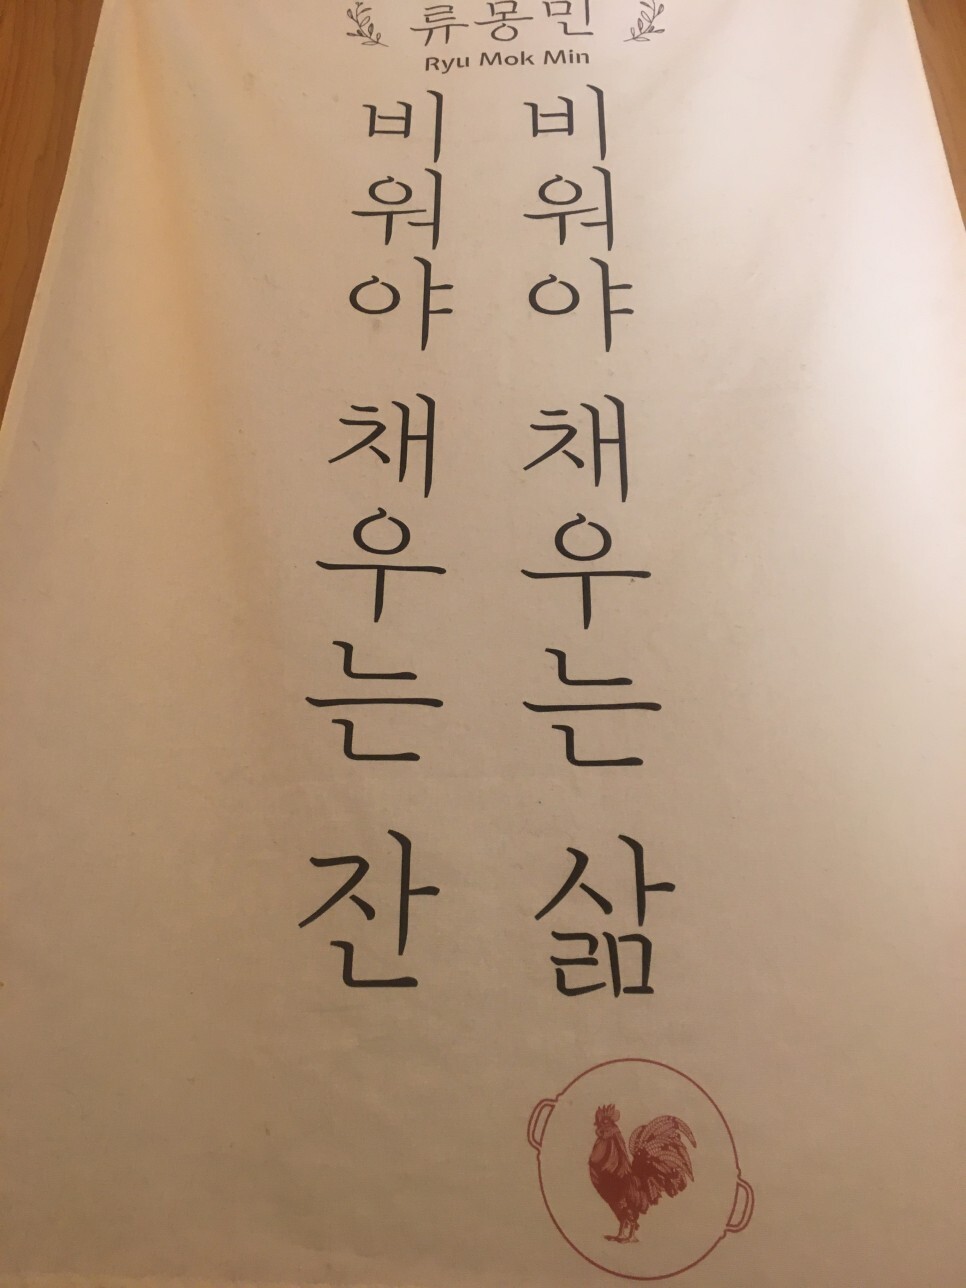 류몽민
Ryu Mok Min
비워야 채우는 잔
비워야 채우는 삶